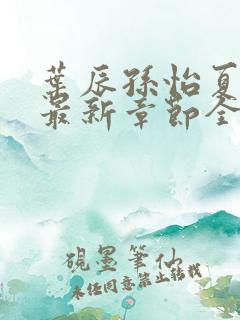 叶辰孙怡夏
最新章节全
砚墨笔仙
未经同意禁止转载